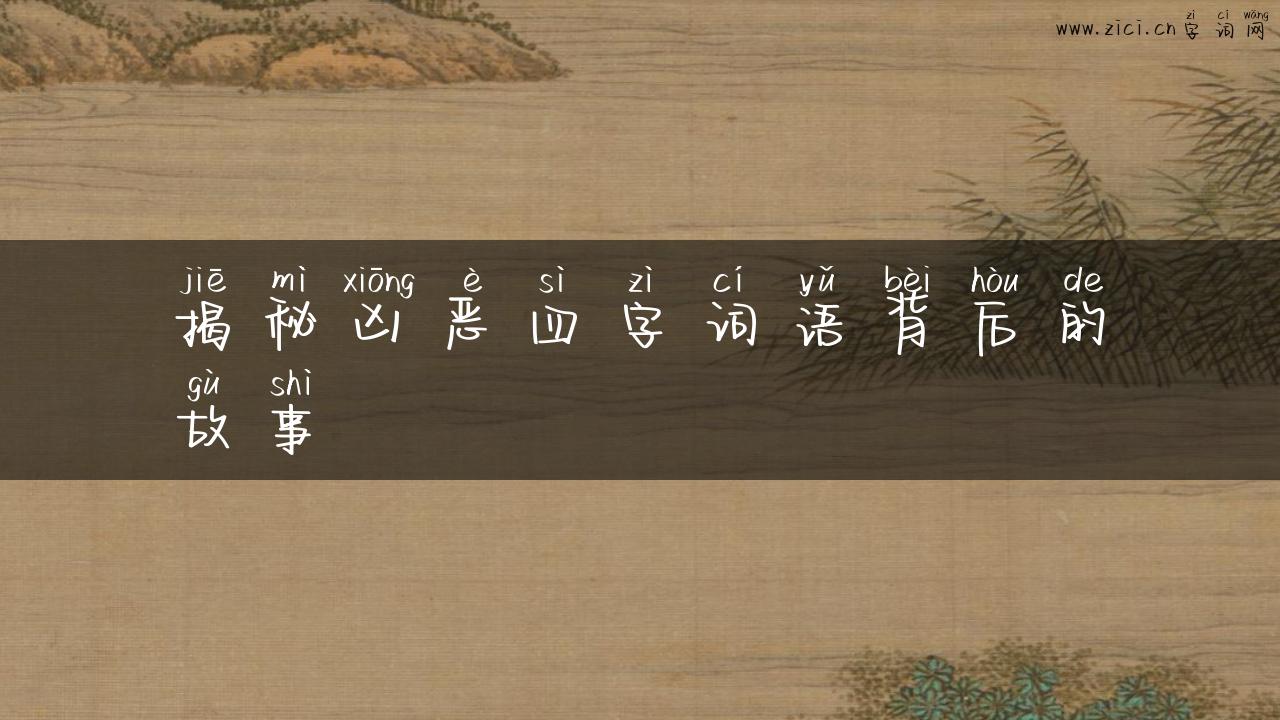 zì cí wǎng
www.zici.cn 字词网
jiē mì xiōng è sì zì cí yǔ bèi hòu de
揭秘凶恶四字词语背后的
gù shì
故事